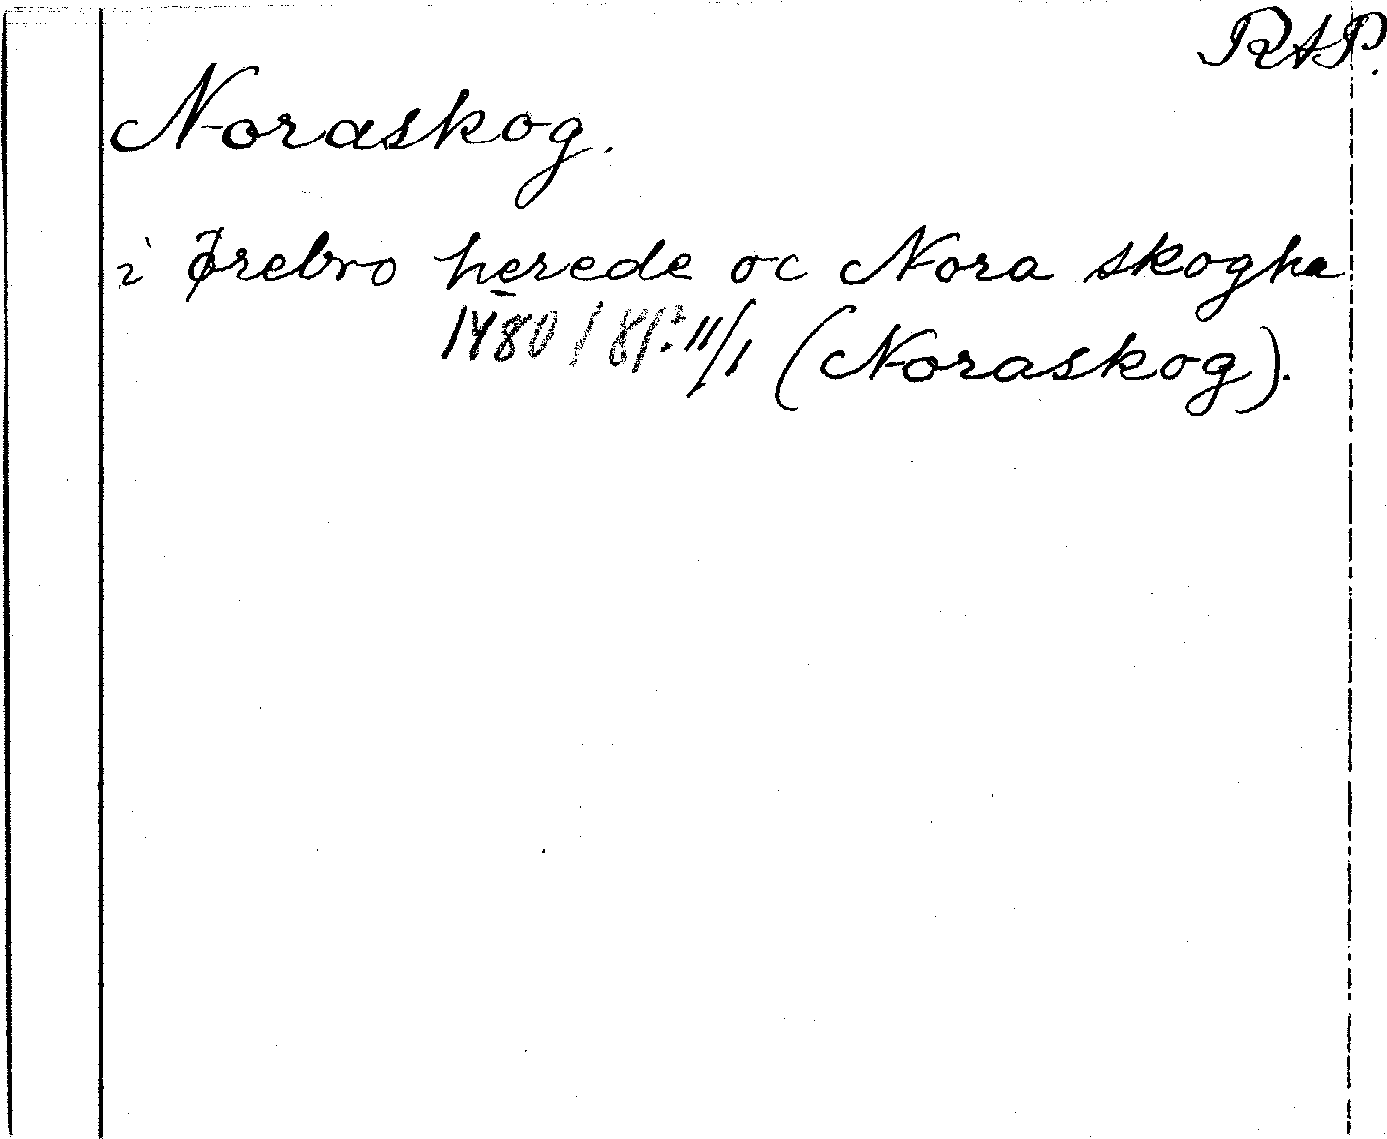 RAP.
Noraskog.
i Ørebro herede oc Nora skogha
1480 / 81? 11/1 (Noraskog).